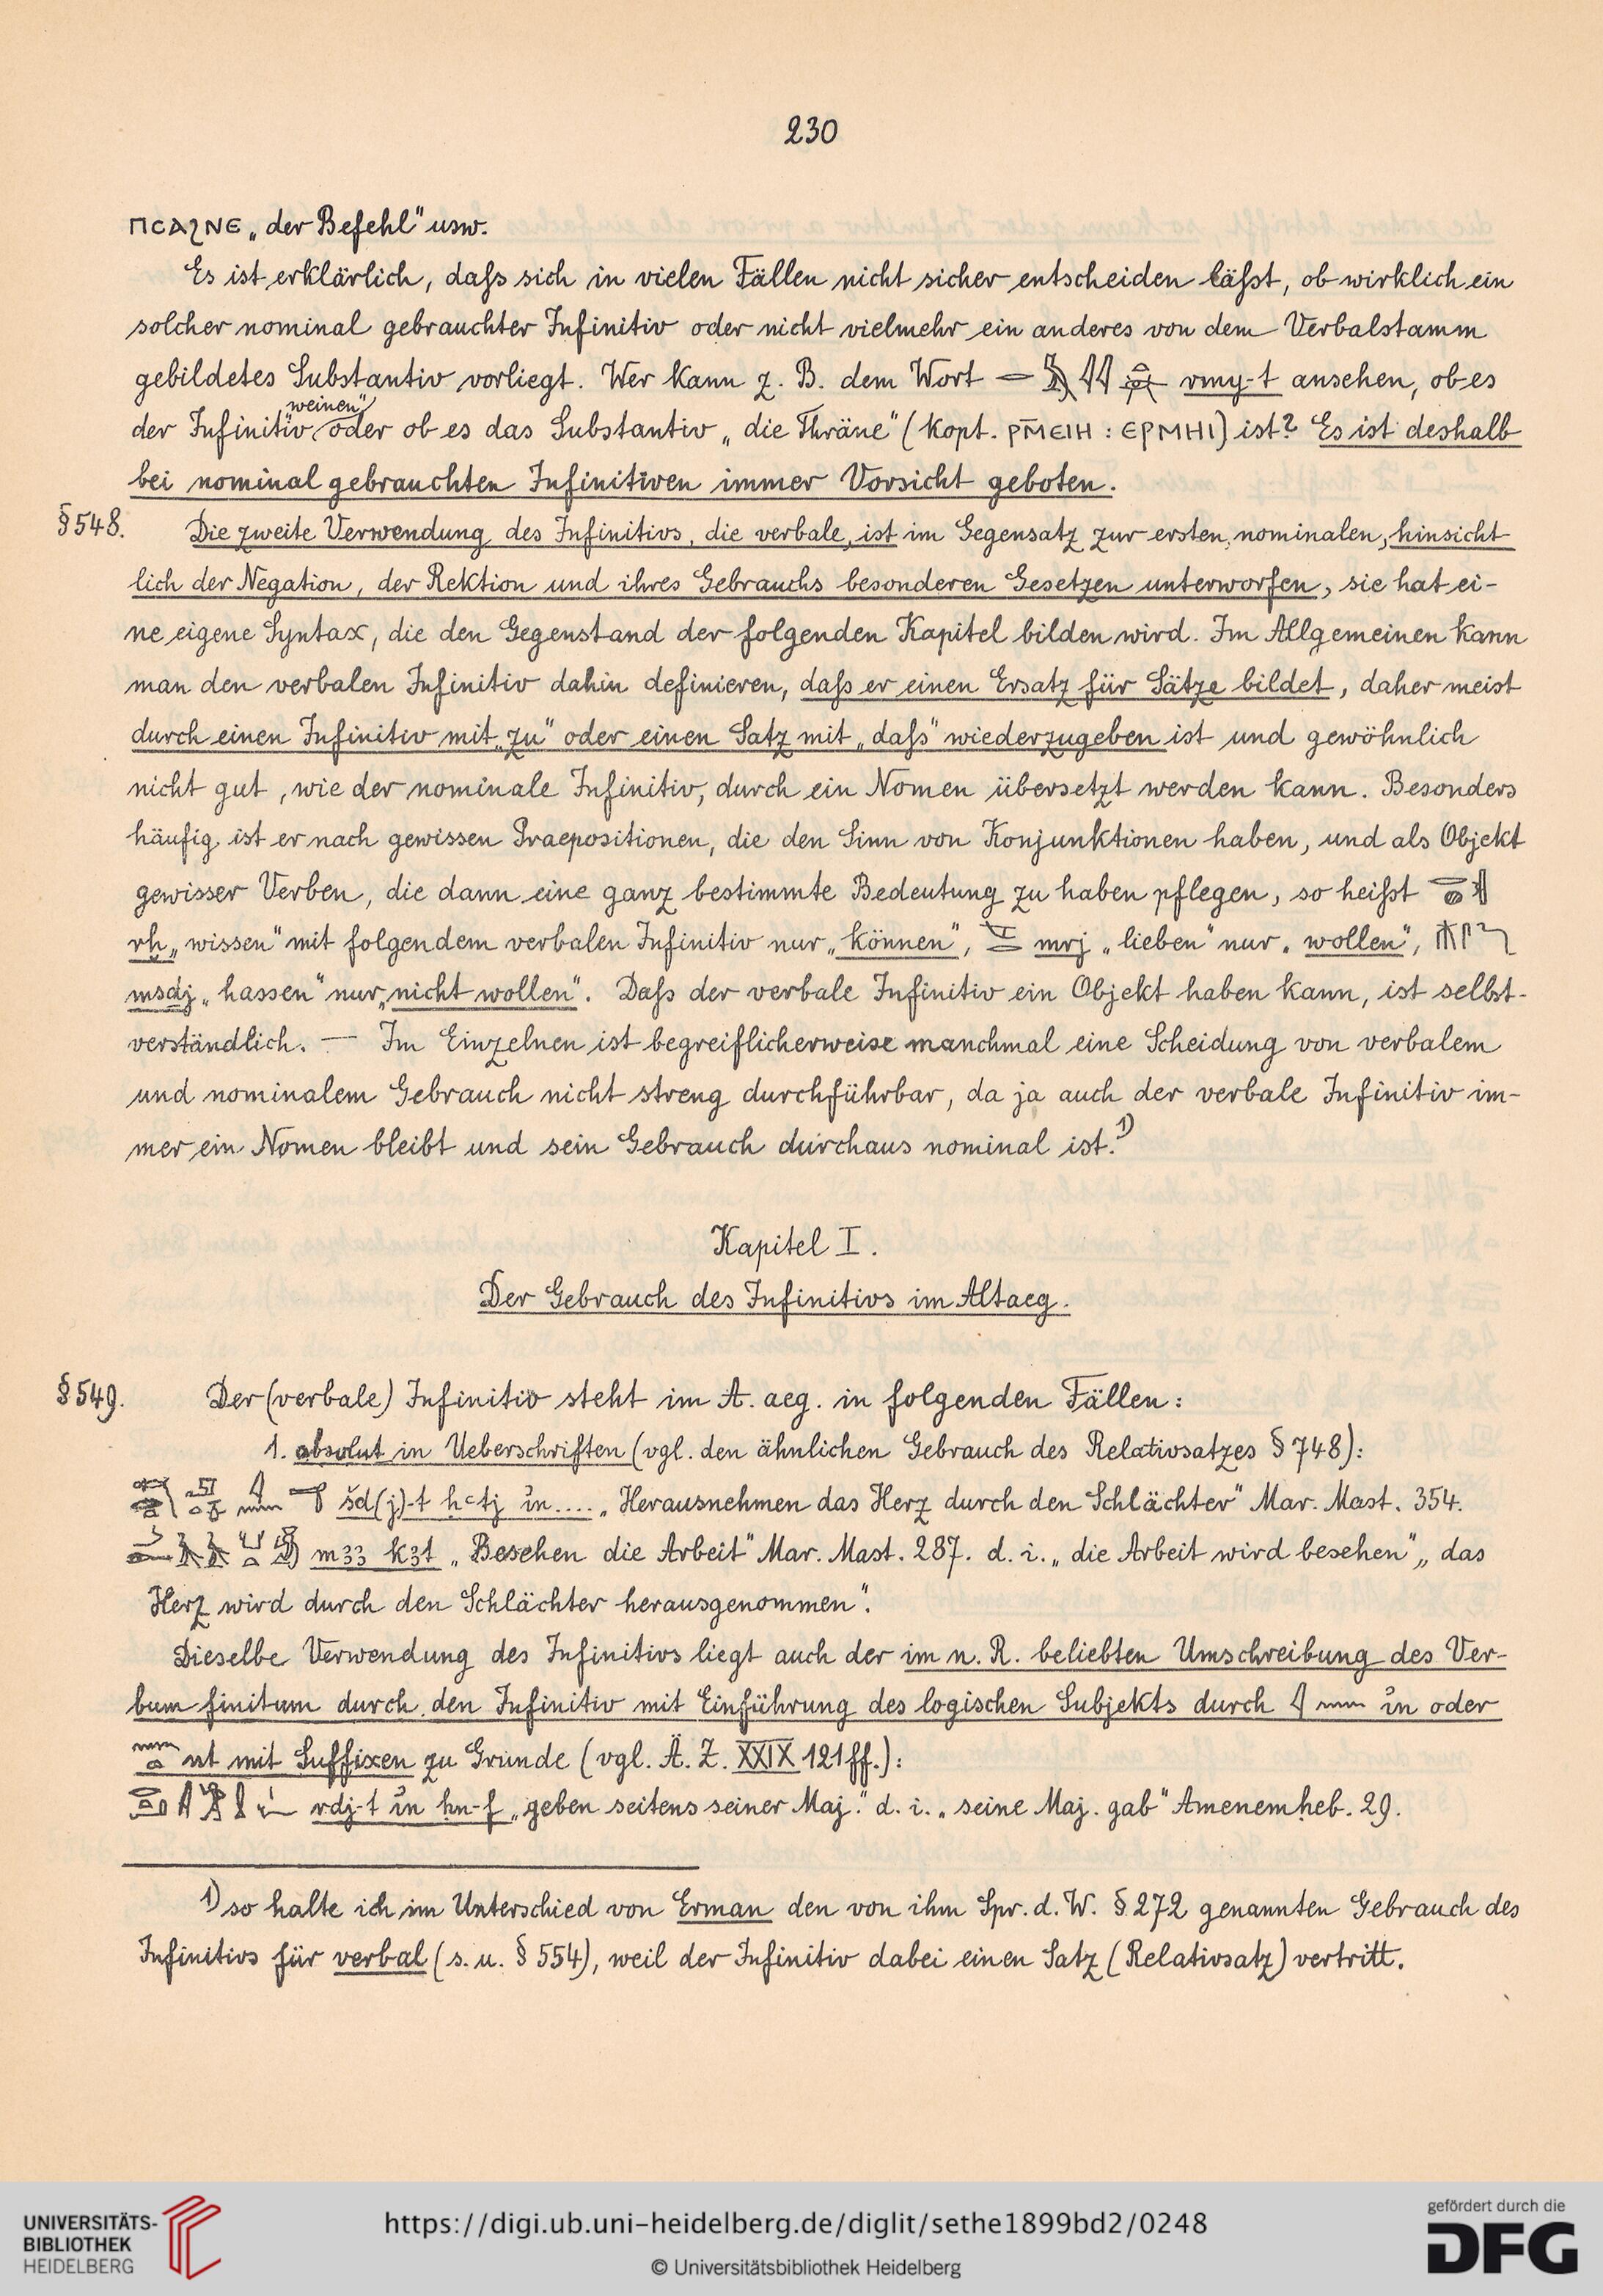 230
ⲠⲤⲀϨⲚⲈ „der Befehl“ usw.
Es ist erklärlich, daſs sich in vielen Fällen nicht sicher entscheiden läſst, ob wirklich ein
solcher nominal gebrauchter Infinitiv oder nicht vielmehr ein anderes von dem Verbalstamm
gebildetes Substantiv vorliegt. Wer kann z. B. dem Wort rmy-t ansehen, ob es
der Infinitiv „weinen“ oder ob es das Substantiv „die Thräne“ (kopt. ⲢⲘ̄ⲈⲒⲎ : ⲈⲢⲘⲎⲒ) ist? Es ist deshalb
bei nominal gebrauchten Infinitiven immer Vorsicht geboten.
§ 548. Die zweite Verwendung des Infinitivs, die verbale, ist im Gegensatz zur ersten, nominalen, hinsicht-
lich der Negation, der Rektion und ihres Gebrauchs besonderen Gesetzen unterworfen, sie hat ei-
ne eigene Syntax, die den Gegenstand der folgenden Kapitel bilden wird. Im Allgemeinen kann
man den verbalen Infinitiv dahin definieren, daſs er einen Ersatz für Sätze bildet, daher meist
durch einen Infinitiv mit „zu“ oder einen Satz mit „daſs“ wiederzugeben ist und gewöhnlich
nicht gut, wie der nominale Infinitiv, durch ein Nomen übersetzt werden kann. Besonders
häufig ist er nach gewissen Praepositionen, die den Sinn von Konjunktionen haben, und als Objekt
gewisser Verben, die dann eine ganz bestimmte Bedeutung zu haben pflegen, so heiſst
rḫ „wissen“ mit folgendem verbalen Infinitiv nur „können“, mrj „lieben“ nur „wollen“,
msdj „hassen“ nur „nicht wollen“. Daſs der verbale Infinitiv ein Objekt haben kann, ist selbst-
verständlich. — Im Einzelnen ist begreiflicherweise manchmal eine Scheidung von verbalem
und nominalem Gebrauch nicht streng durchführbar, da ja auch der verbale Infinitiv im-
mer ein Nomen bleibt und sein Gebrauch durchaus nominal ist.¹⁾
Kapitel I.
Der Gebrauch des Infinitivs im Altaeg.
§ 549. Der (verbale) Infinitiv steht im A. aeg. in folgenden Fällen:
1. absolut in Ueberschriften (vgl. den ähnlichen Gebrauch des Relativsatzes § 748):
šd(j)-t ḥꜥtj ỉn.... „Herausnehmen das Herz durch den Schlächter“ Mar. Mast. 354.
mꜣꜣ kꜣt „Besehen die Arbeit“ Mar. Mast. 287. d. i. „die Arbeit wird besehen“, „das
Herz wird durch den Schlächter herausgenommen“.
Dieselbe Verwendung des Infinitivs liegt auch der im n. R. beliebten Umschreibung des Ver-
bum finitum durch den Infinitiv mit Einführung des logischen Subjekts durch ỉn oder
nt mit Suffixen zu Grunde (vgl. Ä. Z. XXIX 121 ff.):
rdj-t ỉn ḥn-f „geben seitens seiner Maj.“ d. i. „seine Maj. gab“ Amenemheb. 29.
¹⁾ so halte ich im Unterschied von Erman den von ihm Spr. d. W. § 272 genannten Gebrauch des
Infinitivs für verbal (s. u. § 554), weil der Infinitiv dabei einen Satz (Relativsatz) vertritt.
UNIVERSITÄTS-
BIBLIOTHEK
HEIDELBERG
https://digi.ub.uni-heidelberg.de/diglit/sethe1899bd2/0248
© Universitätsbibliothek Heidelberg
gefördert durch die
DFG